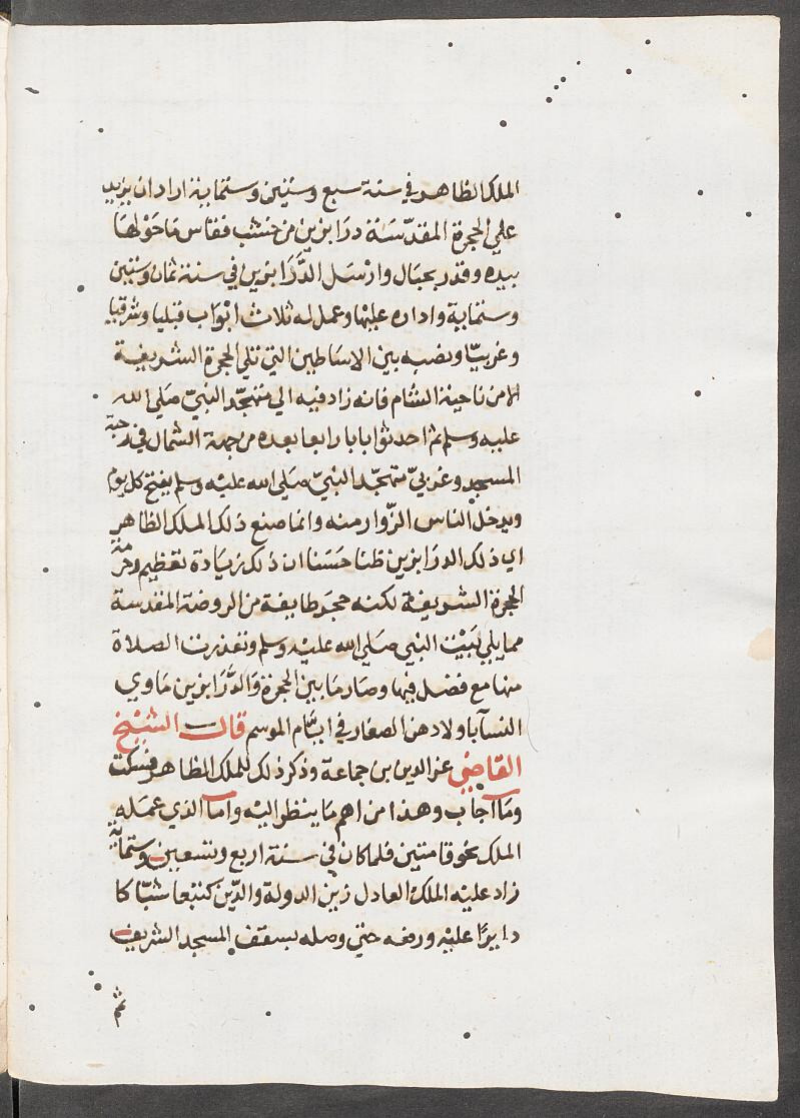 الملك الظاهر في سنة سبع وستين وستماية اراد ان يزيد
علي الحجرة المقدّسة درابزين من خشب فقاس ما حولها
بيده وقدر بحبال وارسل الدَّرابزين في سنة ثمان وستين
وستماية واداره عليها وعمل له ثلاث ابواب قبليا وشرقيا
وغربيّا ونصبه بين الاساطين التي تلي الحجرة الشريفة
الا من ناحية الشام فانه زاد فيه الي متهجّد النبيّ صلي الله
عليه وسلم ثم احدثوا بابا رابعا بعده من جهة الشمال في رحبة
المسجد وغربيّ متهجّد النبيّ صلي الله عليه وسلم يفتح كل يوم
ويدخل الناس الزّوار منه وانما صنع ذلك الملك الظاهر
اي ذلك الدرابزين ظنا حسنا ان ذلك زيادة تعظيم وحرمة
الحجرة الشريفة لكنه حجر طايفة من الروضة المقدسة
مما يلي بَيْت النبي صلي الله عليه وسلم وتعذرت الصلاة
منها مع فضل فيها وصار ما بين الحجرة والدَّرابزين ماوي
النسآ باولادهن الصغار في ايّام الموسم قال الشيخ
القاضي عز الدين بن جماعة وذكر ذلك للملك الظاهر فسكت
وما اجاب وهذا من اهم ما ينظر اليه واما الذي عمله
الملك نحو قامتين فلما كان في سنة اربع وتسعين وستماية
زاد عليه الملك العادل زين الدولة والدّين كتبغا شبّاكا
دايرًا عليه ورفعه حتي وصله بسقف المسجد الشريف
ثم